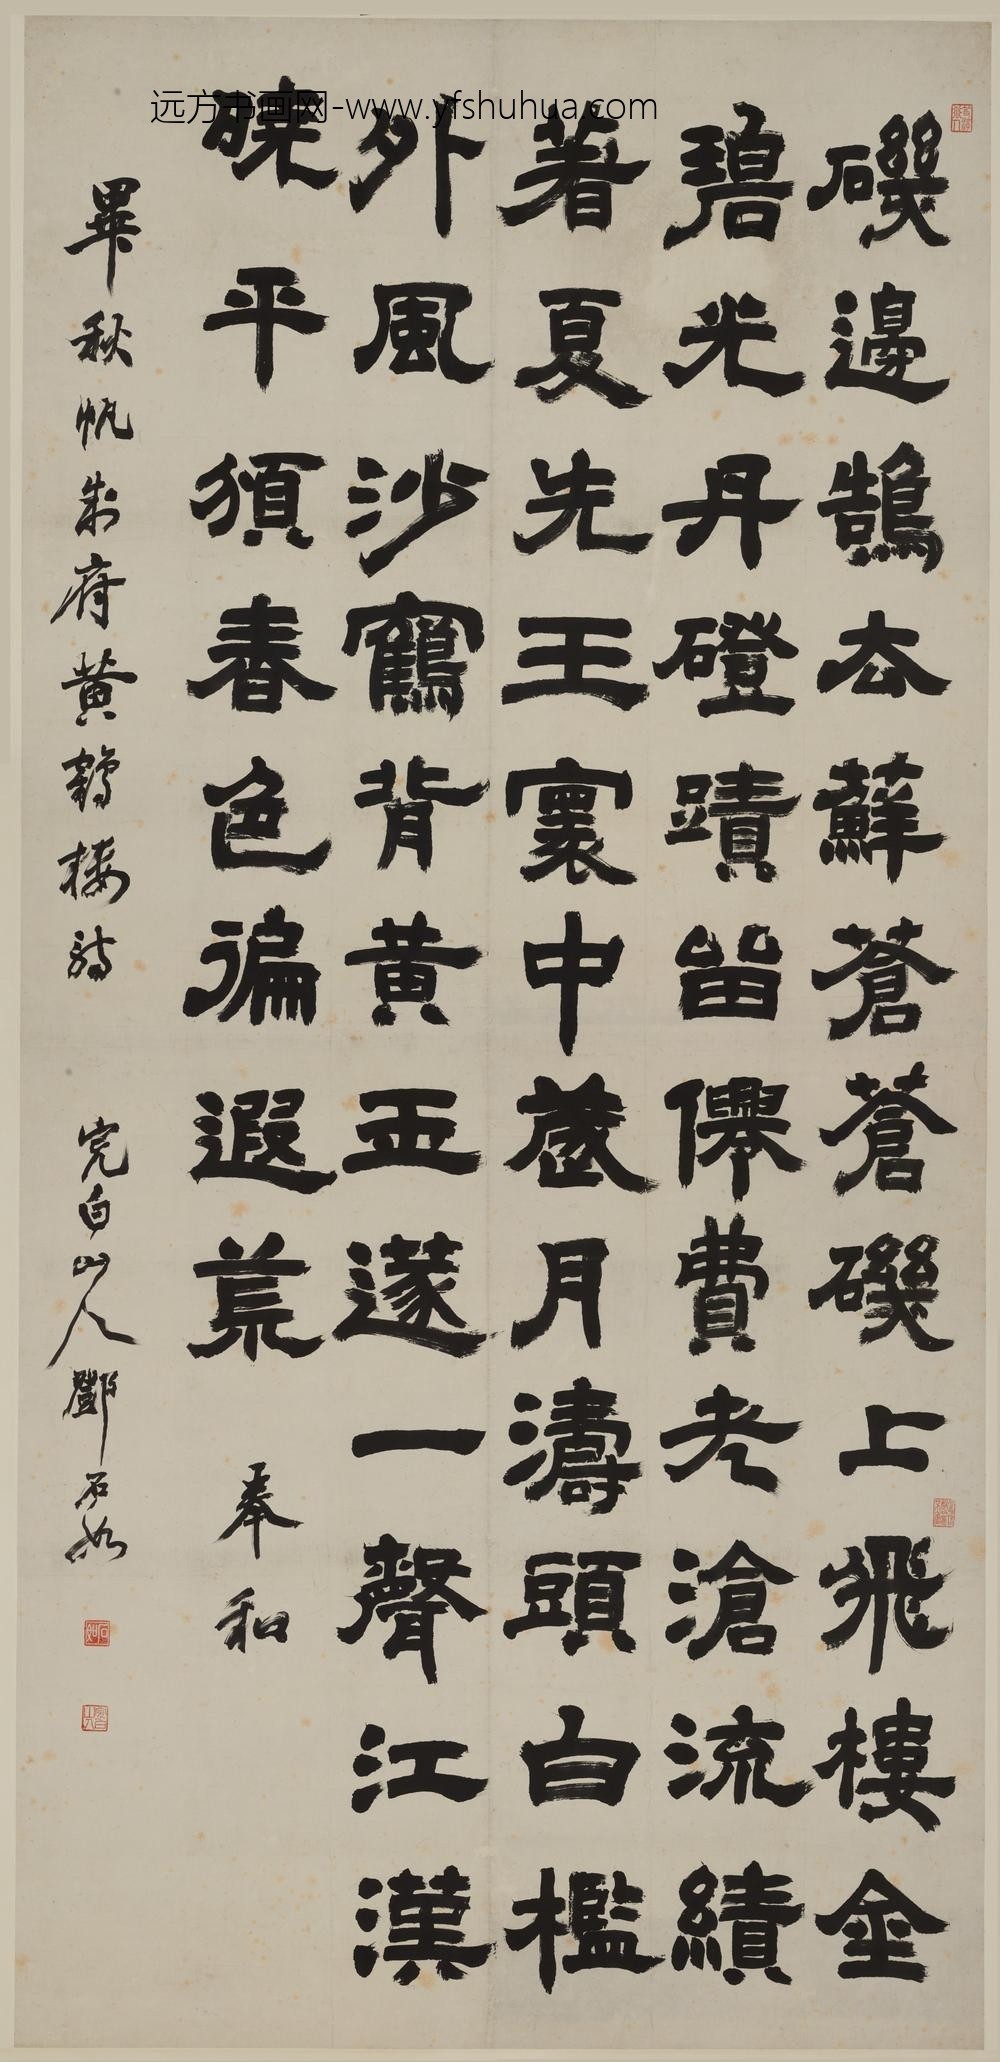 远方书画网-www.yfshuhua.com
磯邊鵠去蘚蒼蒼磯上飛樓金
碧光丹磴蹟留儛費老滄流績
著夏先王寰中歲月濤頭白檻
外風沙鶴背黃五邃一聲江漢
曉平頒春色徧遐荒
奉和
畢秋帆制府黃鶴樓詩
完白山人鄧石如